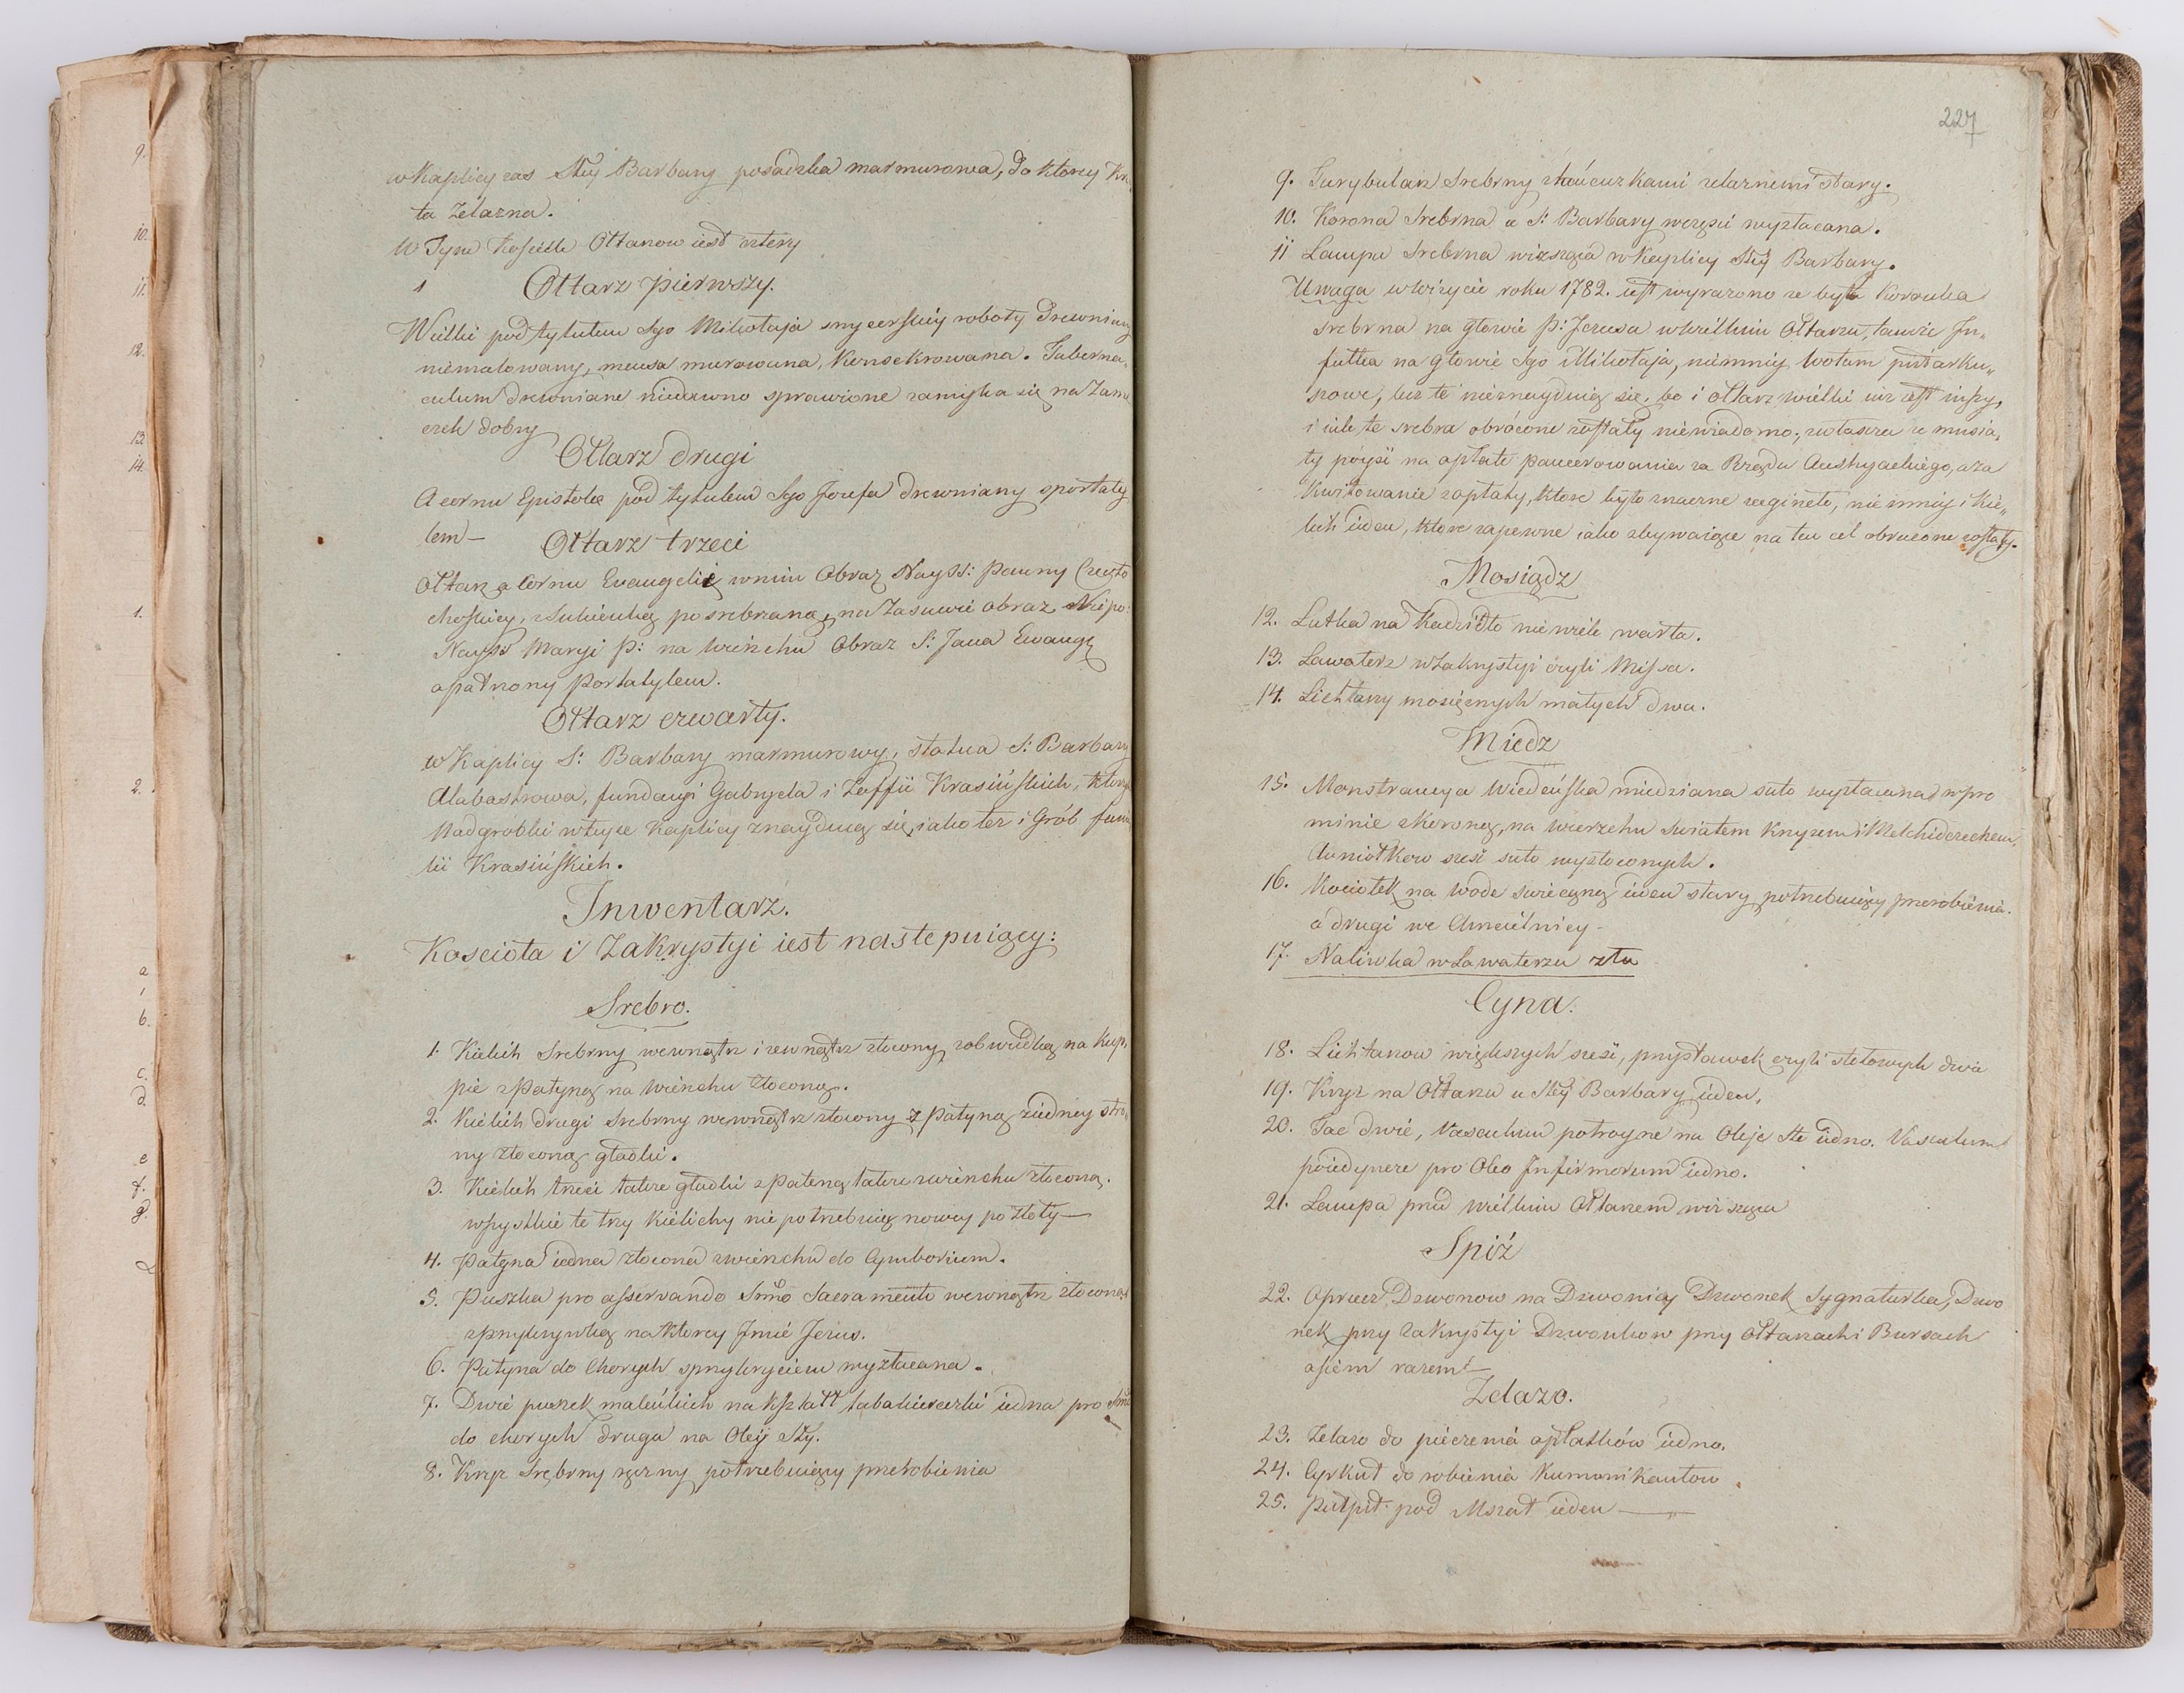 w Kaplicy zas Stey Barbary posadzka marmurowa, do ktorey Kra
ta Zelazna.
W Tym kosciele Ołtarzow iest cztery
1 Ołtarz pierwszy.
Wielki pod tytułem Sgo Mikołaja snycerskiey roboty drewniany
niemalowany, mensa murowana, konsekrowana. Taberna„
culum drewniane niedawno sprawione zamyka się na Zame
czek dobry
Ołtarz drugi
A cornu Epistolæ pod tytułem Sgo Jozefa drewniany z portaty
lem —
Ołtarz trzeci
Ołtarz a Cornu Evangelii w nim Obraz Nayss: Panny Często
choskiey, z Sukienką posrebrzaną, na Zasuwie obraz Niepo:
Nayss Maryi P: na wierzchu Obraz S: Jana Ewangę
opatrzony Portatylem.
Ołtarz czwarty.
w Kaplicy S: Barbary marmurowy, statua S: Barbary
Alabastrowa, fundacyi Gabryela i Zoffii Krasińskich, ktory
Nadgróbki w teyże Kaplicy znayduią się, iako tez i Grób fami
lii Krasińskich.
Inwentarz.
Koscioła i Zakrystyi iest nastepuiący:
Srebro.
1. Kielich Srebrny wewnątrz i zewnątrz złocony z obwudką na Kup„
pie z Patyną na wierzchu złoconą.
2. Kielich drugi Srebrny wewnątrz złocony z Patyną z iedney stro„
ny złoconą gładki.
3. Kielich trzeci takze gładki z Pateną takze z wierzchu złoconą.
wszystkie te trzy Kielichy nie potrzebuią nowey pozłoty —
4. Patyna iedna złocona z wierzchu do Cymborium.
5. Puszka pro asservando Ssmo Sacramento wewnątrz złocona
z przykrywką na ktorey Imie Jezus.
6. Patyna do Chorych z przykryciem wyzłacana.
7. Dwie puszek malenkich na kształt tabakiereczki iedna pro Smo
do chorych druga na Oley Sty.
8. Krzyz Srebrny ręczny potrzebuiący przerobienia
227
9. Turybularz Srebrny z łańcuzkami zelaznemi stary.
10. Korona Srebrna u S: Barbary w części wyzłacana.
11 Lampa Srebrna wisząca w Kaplicy Stey Barbary.
Uwaga w wizycie roku 1782. iest wyrazono ze była Koronka
srebrna na głowie P: Jezusa w wielkim Ołtarzu, takze In„
fułka na głowie Sgo Mikołaja, niemniey wotum
powe, lecz te nieznayduią się, bo i ołtarz wielki iuz iest inszy,
i ile te srebra obrócone zostały niewiadomo; zwłaszcza ze musia„
ły poyść na opłate pancerowania za Rządu Austryackiego, a za
Kwitowanie zapłaty, ktore było znaczne zaginęło, nie mniey i Kie„
lich ieden, ktore zapewne iako zbywaiące na ten cel obrucone zostały.
Mosiądz
12. Łutka na Kadzidło nie wiele warta.
13. Lawaterz w Zakrystyi czyli Missa.
14. Lichtarzy mosięznych małych dwa.
Miedz
15. Monstrancya Wiedeńska miedziana suto wyzłacana w pro
minie z koroną, na wierzchu Swiatem Krzyzem i Melchidezechem
Aniołkow szesć suto wyzłoconych.
16. Kociołek na wode swięconą ieden stary potrzebuiący przerobienia.
a drugi we Chrcielnicy —
17. Naliwka w Lawaterzu zła
Cyna.
18. Lichtarzow większych szesć, przystawek czyli stołowych dwa
19. Krzyz na Ołtarzu u Stey Barbary ieden,
20. Tac dwie, Vasculum potroyne na Oleje Ste iedno. Vasculum
poiedyncze pro Oleo Infirmorum iedno.
21. Lampa przed wielkim Ołtarzem wisząca
Spiż
22. Oprucz Dzwonow na Dzwonicy Dzwonek Sygnaturka, Dzwo
nek przy zakrystyi Dzwonkow przy ołtarzach i Bursach
osiem razem —
Zelazo.
23. Zelazo do pieczenia opłatków iedno.
24. Cyrkuł do robienia Kumunikantow.
25. Pulpit pod Mszał ieden —